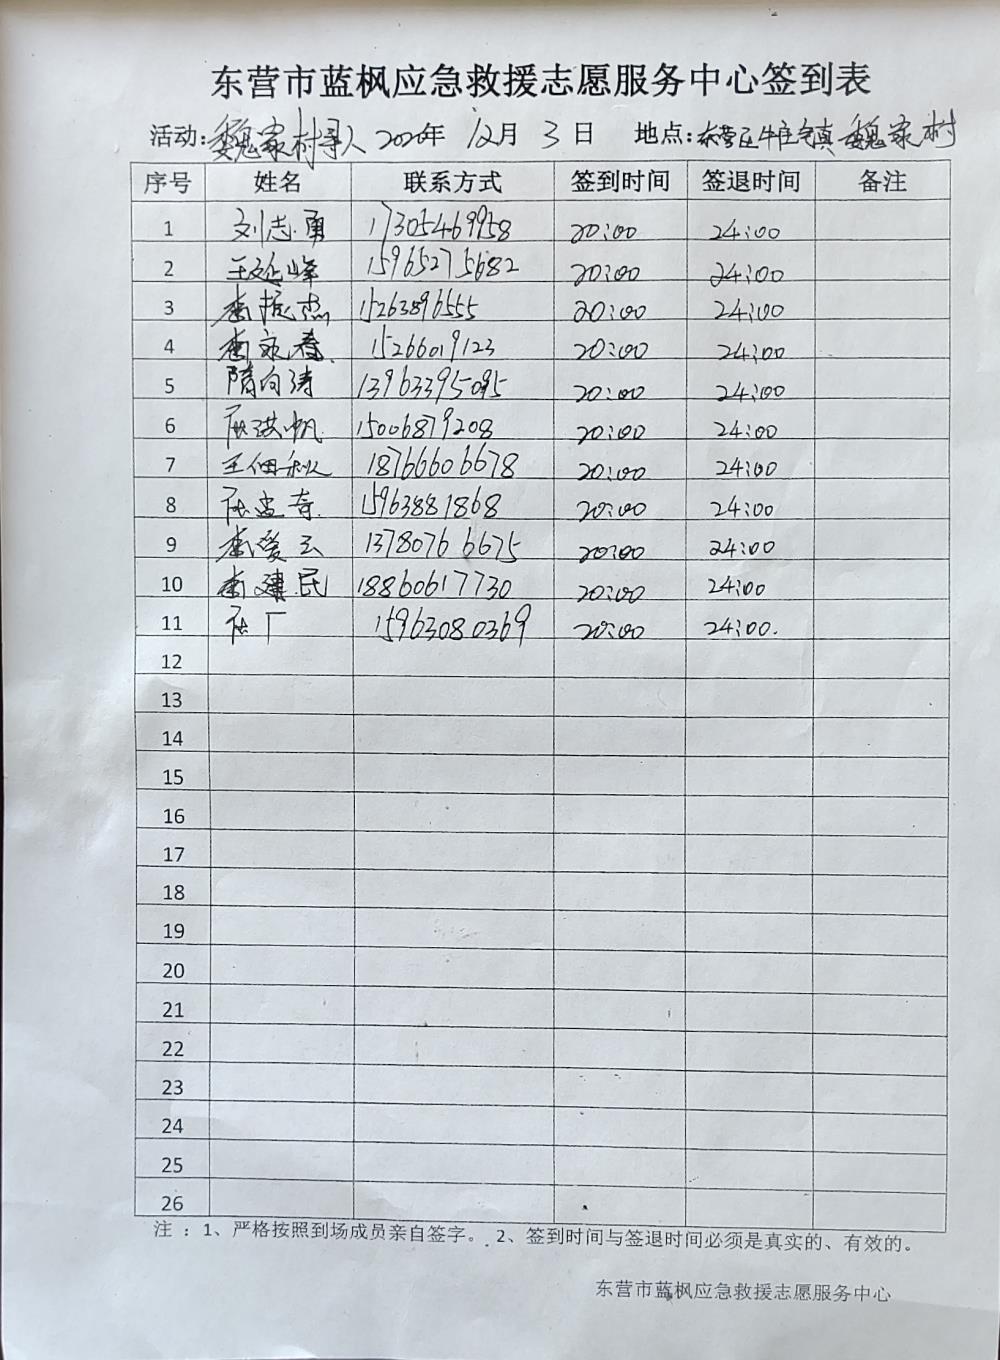 东营市蓝枫应急救援志愿服务中心签到表
活动:魏家村寻人 2020年 12月 3日 地点:东营区牛庄镇魏家村
序号 姓名 联系方式 签到时间 签退时间 备注
1 刘志勇 17305469958 20:00 24:00
2 王延峰 15965275682 20:00 24:00
3 李振杰 15263896555 20:00 24:00
4 李永春 15266019123 20:00 24:00
5 隋向涛 13963395095 20:00 24:00
6 洪帆 15006879208 20:00 24:00
7 王佃秋 18766606678 20:00 24:00
8 15963881868 20:00 24:00
9 李爱云 13780766675 20:00 24:00
10 李建民 18860617730 20:00 24:00
11 15963080369 20:00 24:00.
12
13
14
15
16
17
18
19
20
21
22
23
24
25
26
注:1、严格按照到场成员亲自签字。2、签到时间与签退时间必须是真实的、有效的。
东营市蓝枫应急救援志愿服务中心